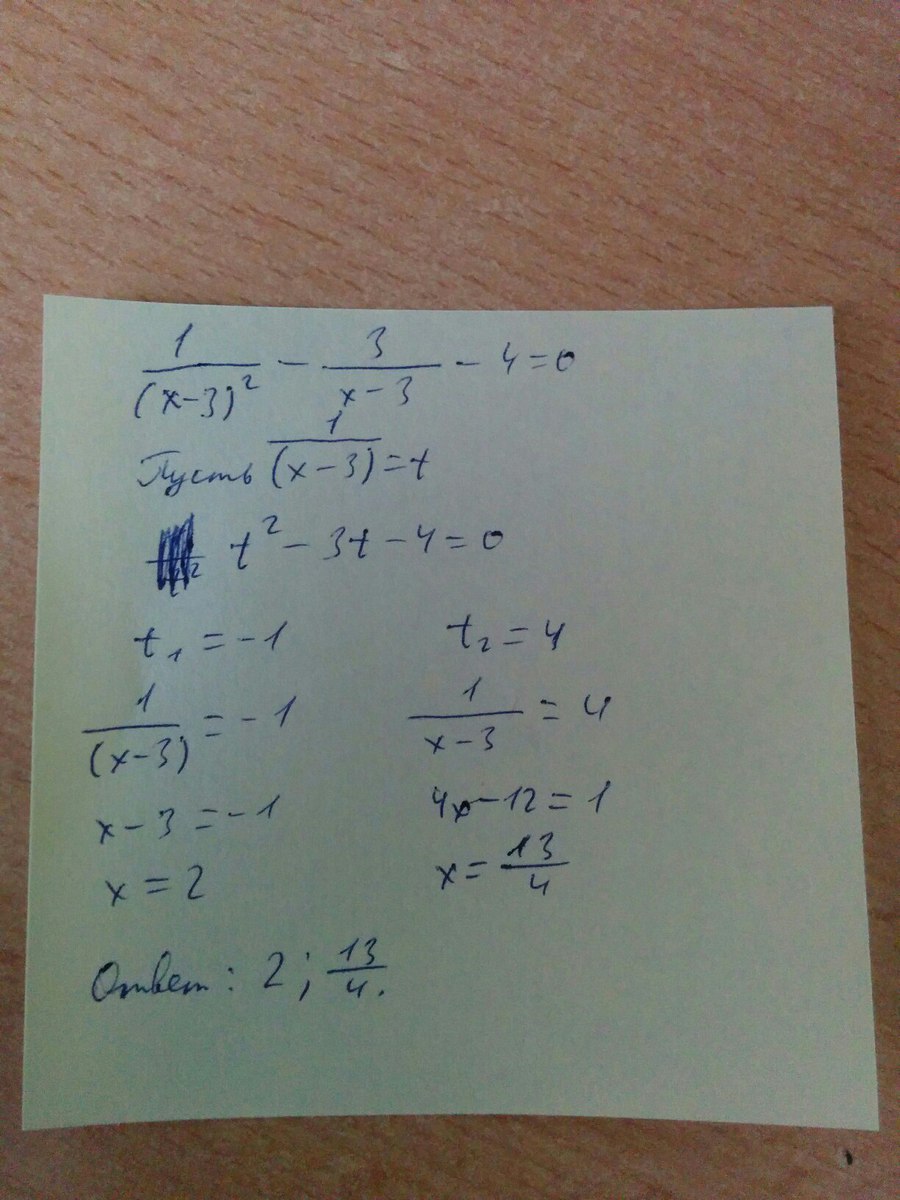 1/(x-3)² - 3/(x-3) - 4 = 0
Пусть 1/(x-3) = t
t² - 3t - 4 = 0
t₁ = -1 t₂ = 4
1/(x-3) = -1 1/(x-3) = 4
x - 3 = -1 4x - 12 = 1
x = 2 x = 13/4
Ответ: 2; 13/4.